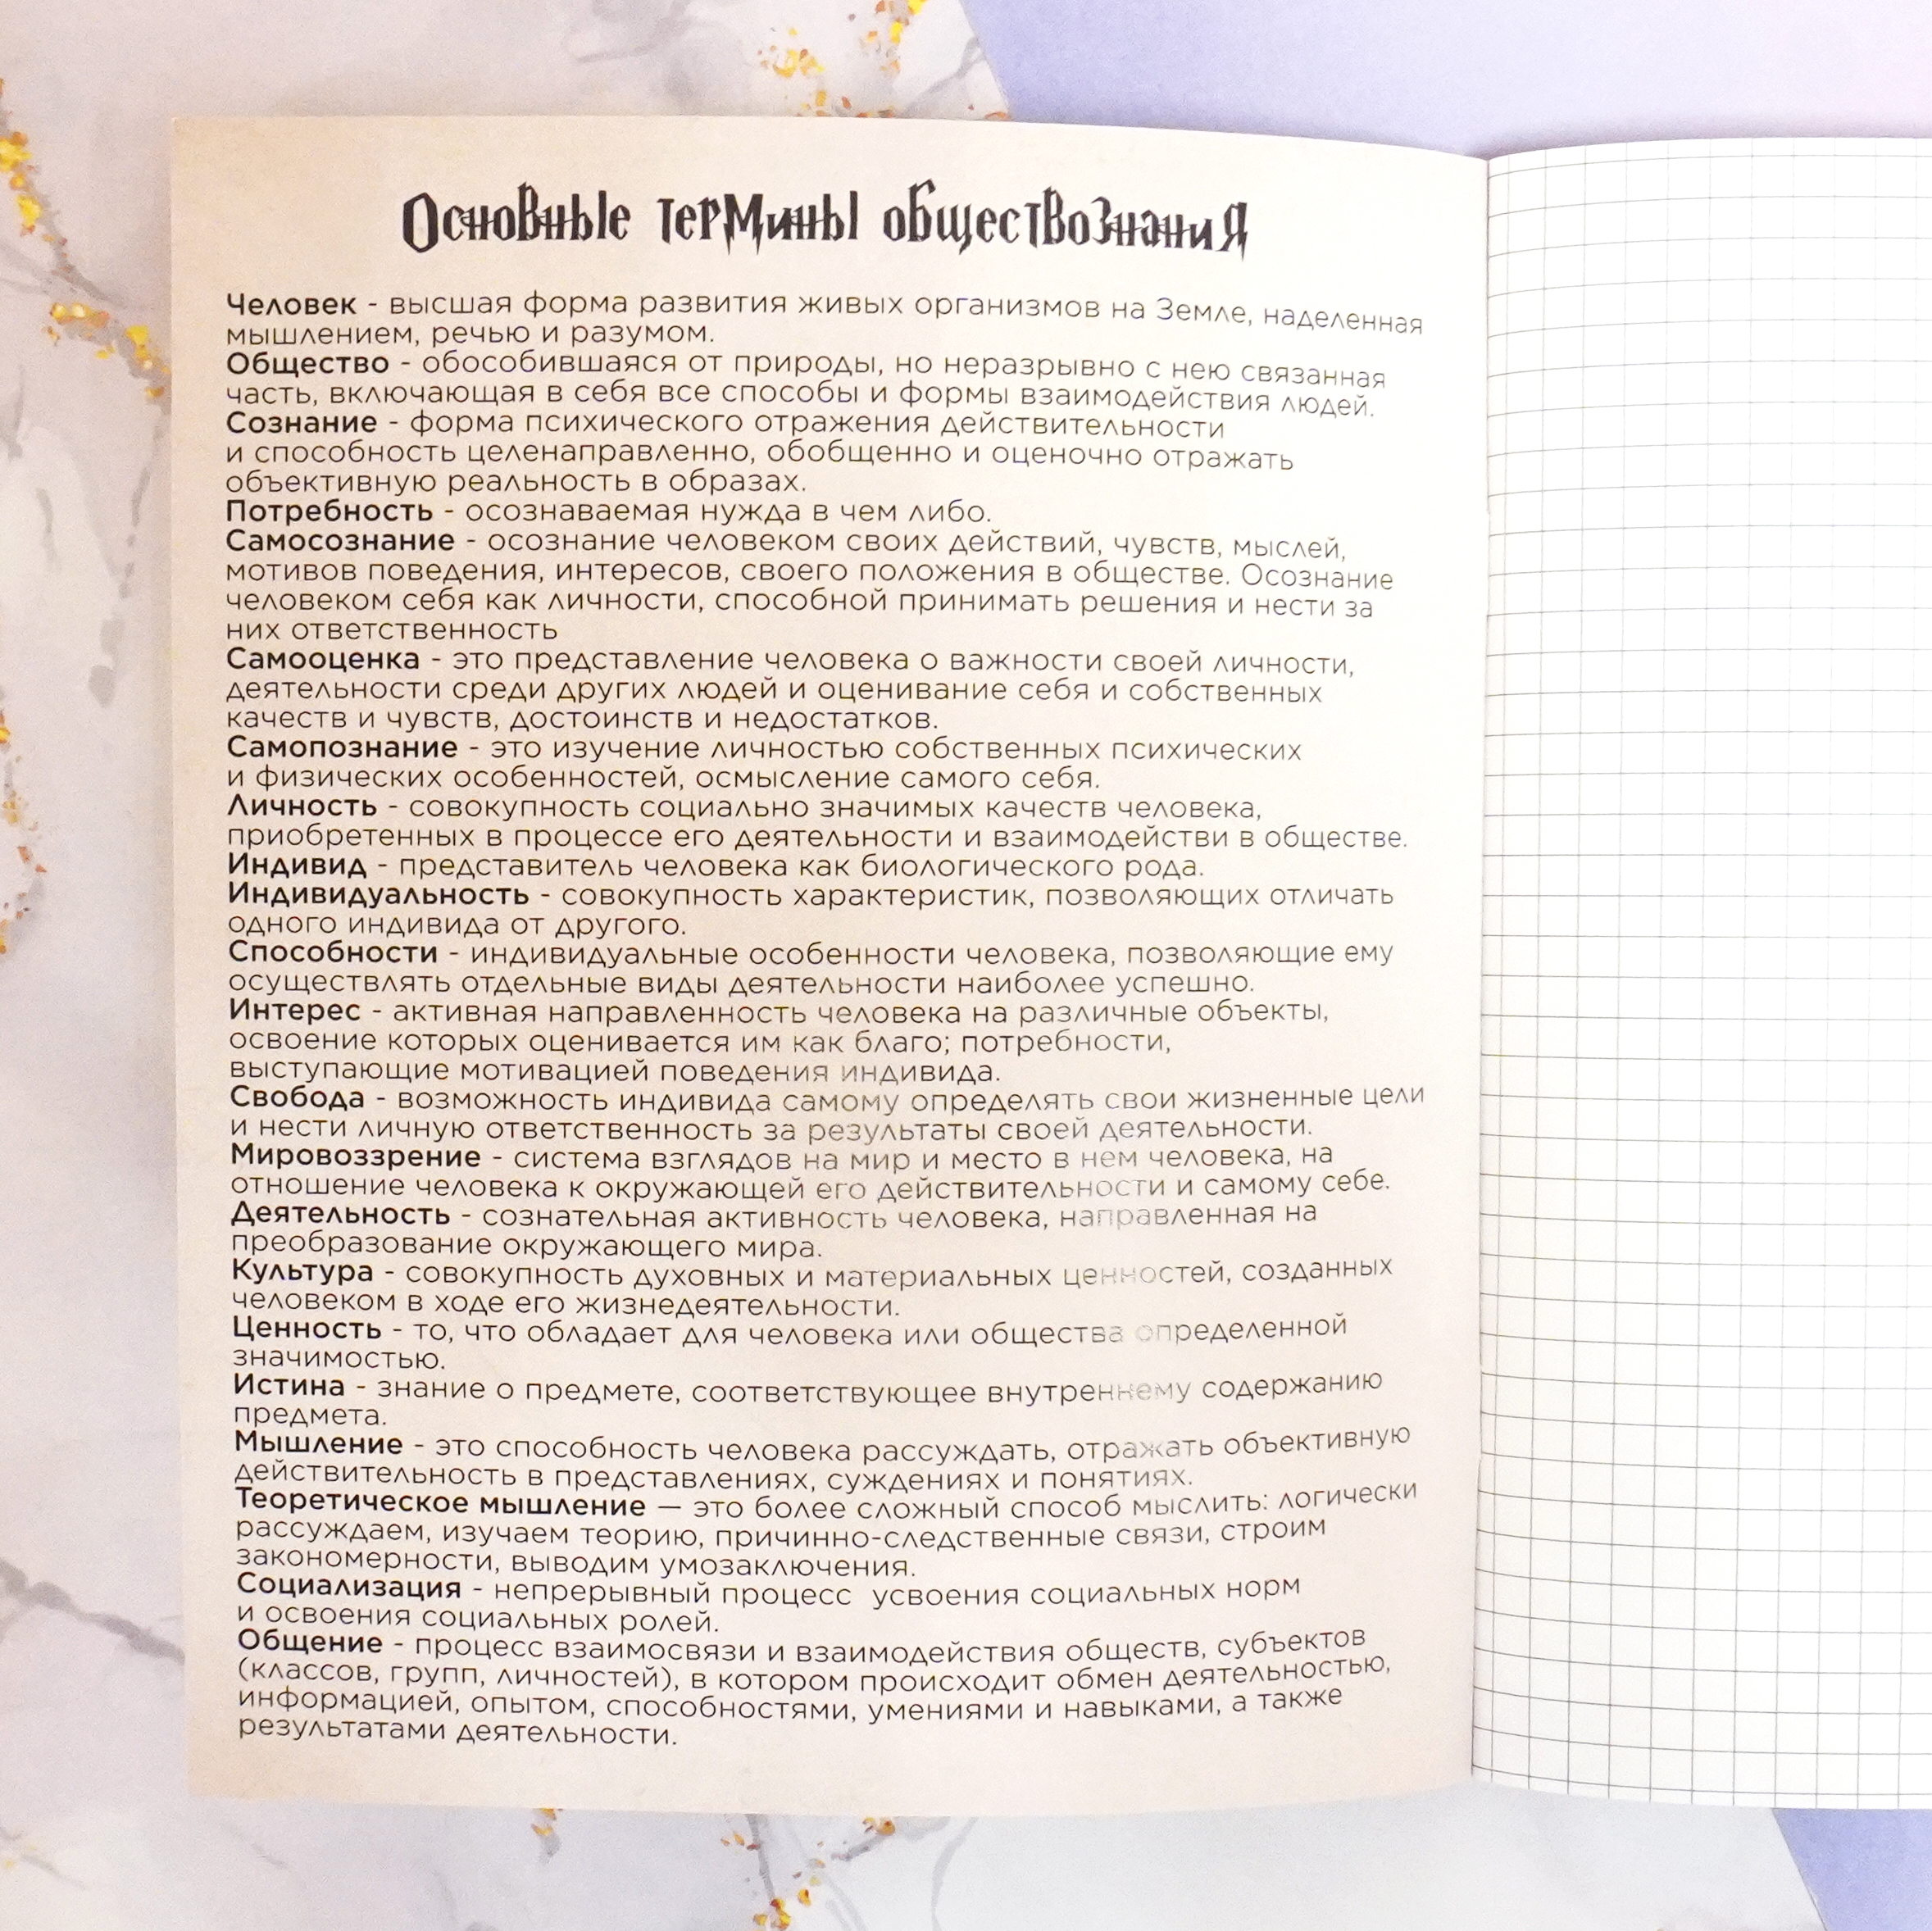 Основные термины обществознания
Человек - высшая форма развития живых организмов на Земле, наделенная
мышлением, речью и разумом.
Общество - обособившаяся от природы, но неразрывно с нею связанная
часть, включающая в себя все способы и формы взаимодействия людей.
Сознание - форма психического отражения действительности
и способность целенаправленно, обобщенно и оценочно отражать
объективную реальность в образах.
Потребность - осознаваемая нужда в чем либо.
Самосознание - осознание человеком своих действий, чувств, мыслей,
мотивов поведения, интересов, своего положения в обществе. Осознание
человеком себя как личности, способной принимать решения и нести за
них ответственность
Самооценка - это представление человека о важности своей личности,
деятельности среди других людей и оценивание себя и собственных
качеств и чувств, достоинств и недостатков.
Самопознание - это изучение личностью собственных психических
и физических особенностей, осмысление самого себя.
Личность - совокупность социально значимых качеств человека,
приобретенных в процессе его деятельности и взаимодействи в обществе.
Индивид - представитель человека как биологического рода.
Индивидуальность - совокупность характеристик, позволяющих отличать
одного индивида от другого.
Способности - индивидуальные особенности человека, позволяющие ему
осуществлять отдельные виды деятельности наиболее успешно.
Интерес - активная направленность человека на различные объекты,
освоение которых оценивается им как благо; потребности,
выступающие мотивацией поведения индивида.
Свобода - возможность индивида самому определять свои жизненные цели
и нести личную ответственность за результаты своей деятельности.
Мировоззрение - система взглядов на мир и место в нем человека, на
отношение человека к окружающей его действительности и самому себе.
Деятельность - сознательная активность человека, направленная на
преобразование окружающего мира.
Культура - совокупность духовных и материальных ценностей, созданных
человеком в ходе его жизнедеятельности.
Ценность - то, что обладает для человека или общества определенной
значимостью.
Истина - знание о предмете, соответствующее внутреннему содержанию
предмета.
Мышление - это способность человека рассуждать, отражать объективную
действительность в представлениях, суждениях и понятиях.
Теоретическое мышление — это более сложный способ мыслить: логически
рассуждаем, изучаем теорию, причинно-следственные связи, строим
закономерности, выводим умозаключения.
Социализация - непрерывный процесс  усвоения социальных норм
и освоения социальных ролей.
Общение - процесс взаимосвязи и взаимодействия обществ, субъектов
(классов, групп, личностей), в котором происходит обмен деятельностью,
информацией, опытом, способностями, умениями и навыками, а также
результатами деятельности.